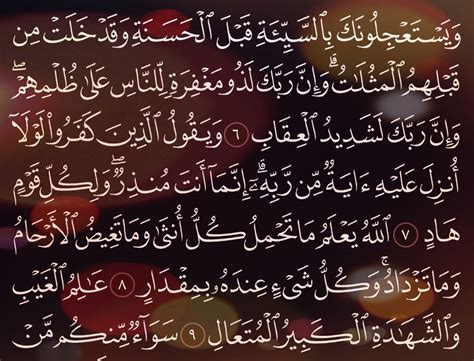 وَيَسۡتَعۡجِلُونَكَ بِٱلسَّيِّئَةِ قَبۡلَ ٱلۡحَسَنَةِ وَقَدۡ خَلَتۡ مِن
قَبۡلِهِمُ ٱلۡمَثُلَٰتُۗ وَإِنَّ رَبَّكَ لَذُو مَغۡفِرَةٖ لِّلنَّاسِ عَلَىٰ ظُلۡمِهِمۡۖ
وَإِنَّ رَبَّكَ لَشَدِيدُ ٱلۡعِقَابِ ٦ وَيَقُولُ ٱلَّذِينَ كَفَرُواْ لَوۡلَآ
أُنزِلَ عَلَيۡهِ ءَايَةٞ مِّن رَّبِّهِۦٓۗ إِنَّمَآ أَنتَ مُنذِرٞۖ وَلِكُلِّ قَوۡمٍ
هَادٍ ٧ ٱللَّهُ يَعۡلَمُ مَا تَحۡمِلُ كُلُّ أُنثَىٰ وَمَا تَغِيضُ ٱلۡأَرۡحَامُ
وَمَا تَزۡدَادُۚ وَكُلُّ شَيۡءٍ عِندَهُۥ بِمِقۡدَارٍ ٨ عَٰلِمُ ٱلۡغَيۡبِ
وَٱلشَّهَٰدَةِ ٱلۡكَبِيرُ ٱلۡمُتَعَالِ ٩ سَوَآءٞ مِّنكُم مَّنۡ